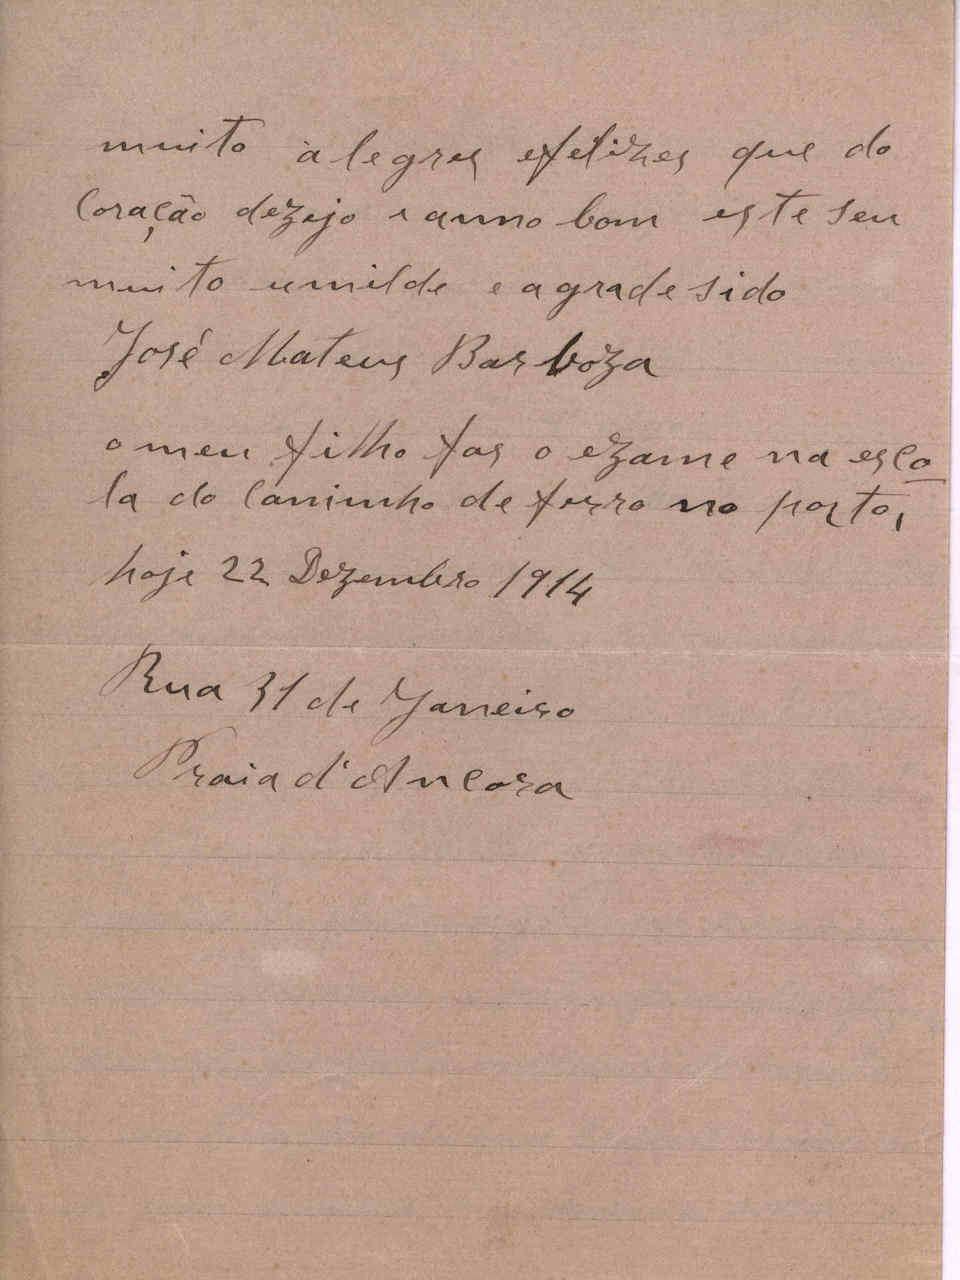 muito àlegres efelizes que do
Coração dezejo e anno bom este seu
muito umilde e agradesido
José Mateus Barboza
o meu filho fas o ezame na esco
la do Caminho de ferro no porto,
hoje 22 Dezembro 1914
Rua 31 de Janeiro
Praia d'Ancora